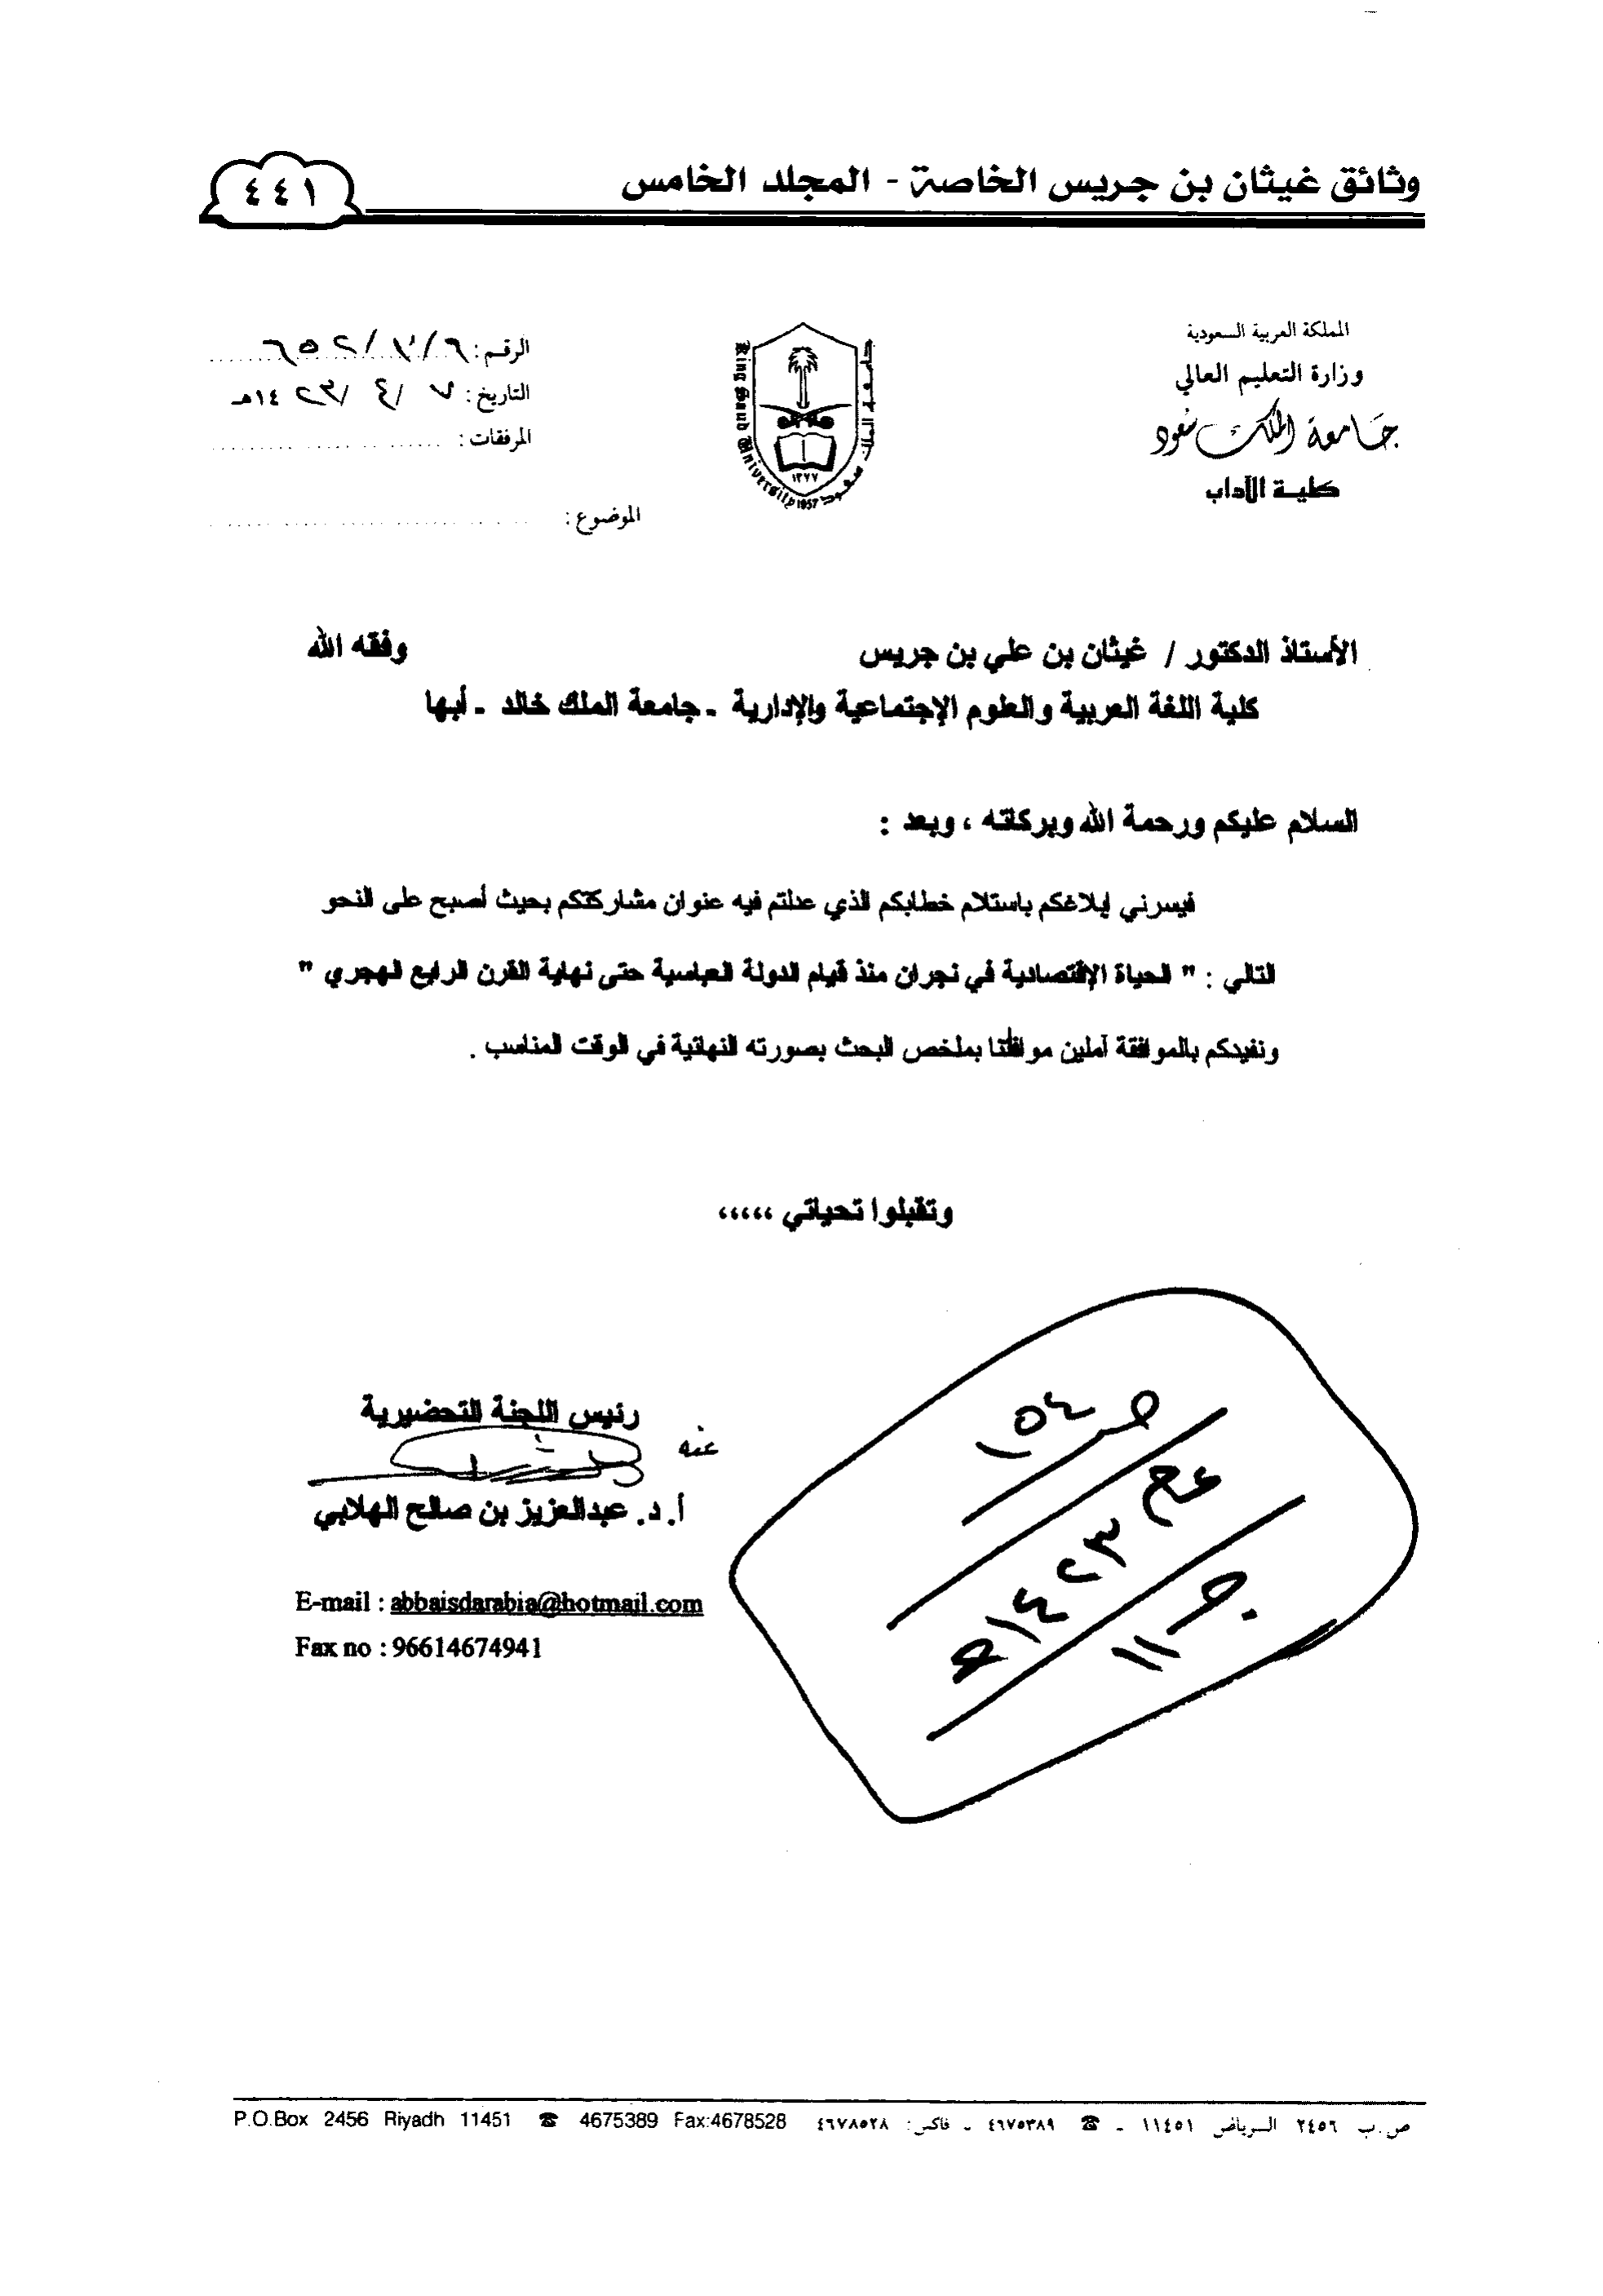 وثائق غيثان بن جريس الخاصة - المجلد الخامس
٤٤١
المملكة العربية السعودية
وزارة التعليم العالي
جامعة الملك سعود
كلية الآداب
King Saud University 1957
١٣٧٧
الرقم:
التاريخ: ٧ / ٤ / ١٤٢٣هـ
المرفقات:
الموضوع:
الأستاذ الدكتور / غيثان بن علي بن جريس وفقه الله
كلية اللغة العربية والعلوم الإجتماعية والإدارية - جامعة الملك خالد - أبها
السلام عليكم ورحمة الله وبركاته ، وبعد :
فيسرني إبلاغكم باستلام خطابكم الذي عدلتم فيه عنوان مشاركتكم بحيث أصبح على النحو
التالي : " الحياة الإقتصادية في نجران منذ قيام الدولة العباسية حتى نهاية القرن الرابع الهجري "
ونفيدكم بالموافقة آملين موافاتنا بملخص البحث بصورته النهائية في الوقت المناسب .
وتقبلوا تحياتي ،،،،،
رئيس اللجنة التحضيرية
عنه
أ.د. عبدالعزيز بن صالح الهلابي
E-mail : abbaisdarabia@hotmail.com
Fax no : 96614674941
ص ١٥٤
عام ١٤٢٣هـ
ج ١١
P.O.Box 2456 Riyadh 11451 ☎ 4675389 Fax:4678528
ص.ب ٢٤٥٦ الرياض ١١٤٥١ - ☎ ٤٦٧٥٣٨٩ - فاكس: ٤٦٧٨٥٢٨